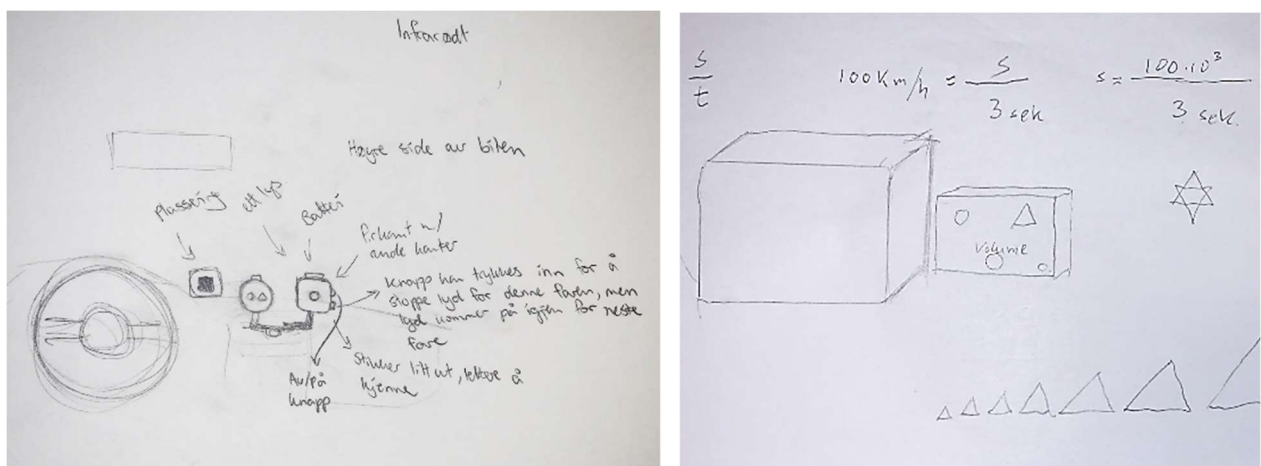 Infrarødt
Høyre side av bilen
Plassering
ett lys
Batteri
Firkant m/
runde kanter
Knapp kan trykkes inn for å
stoppe lyd for denne faren, men
lyd kommer på igjen for neste
fare
Stikker litt ut, lettere å
kjenne
Av/på
knapp
s
t
100 Km/h = s
3 sek
s = 100·10³
3 sek.
Volume